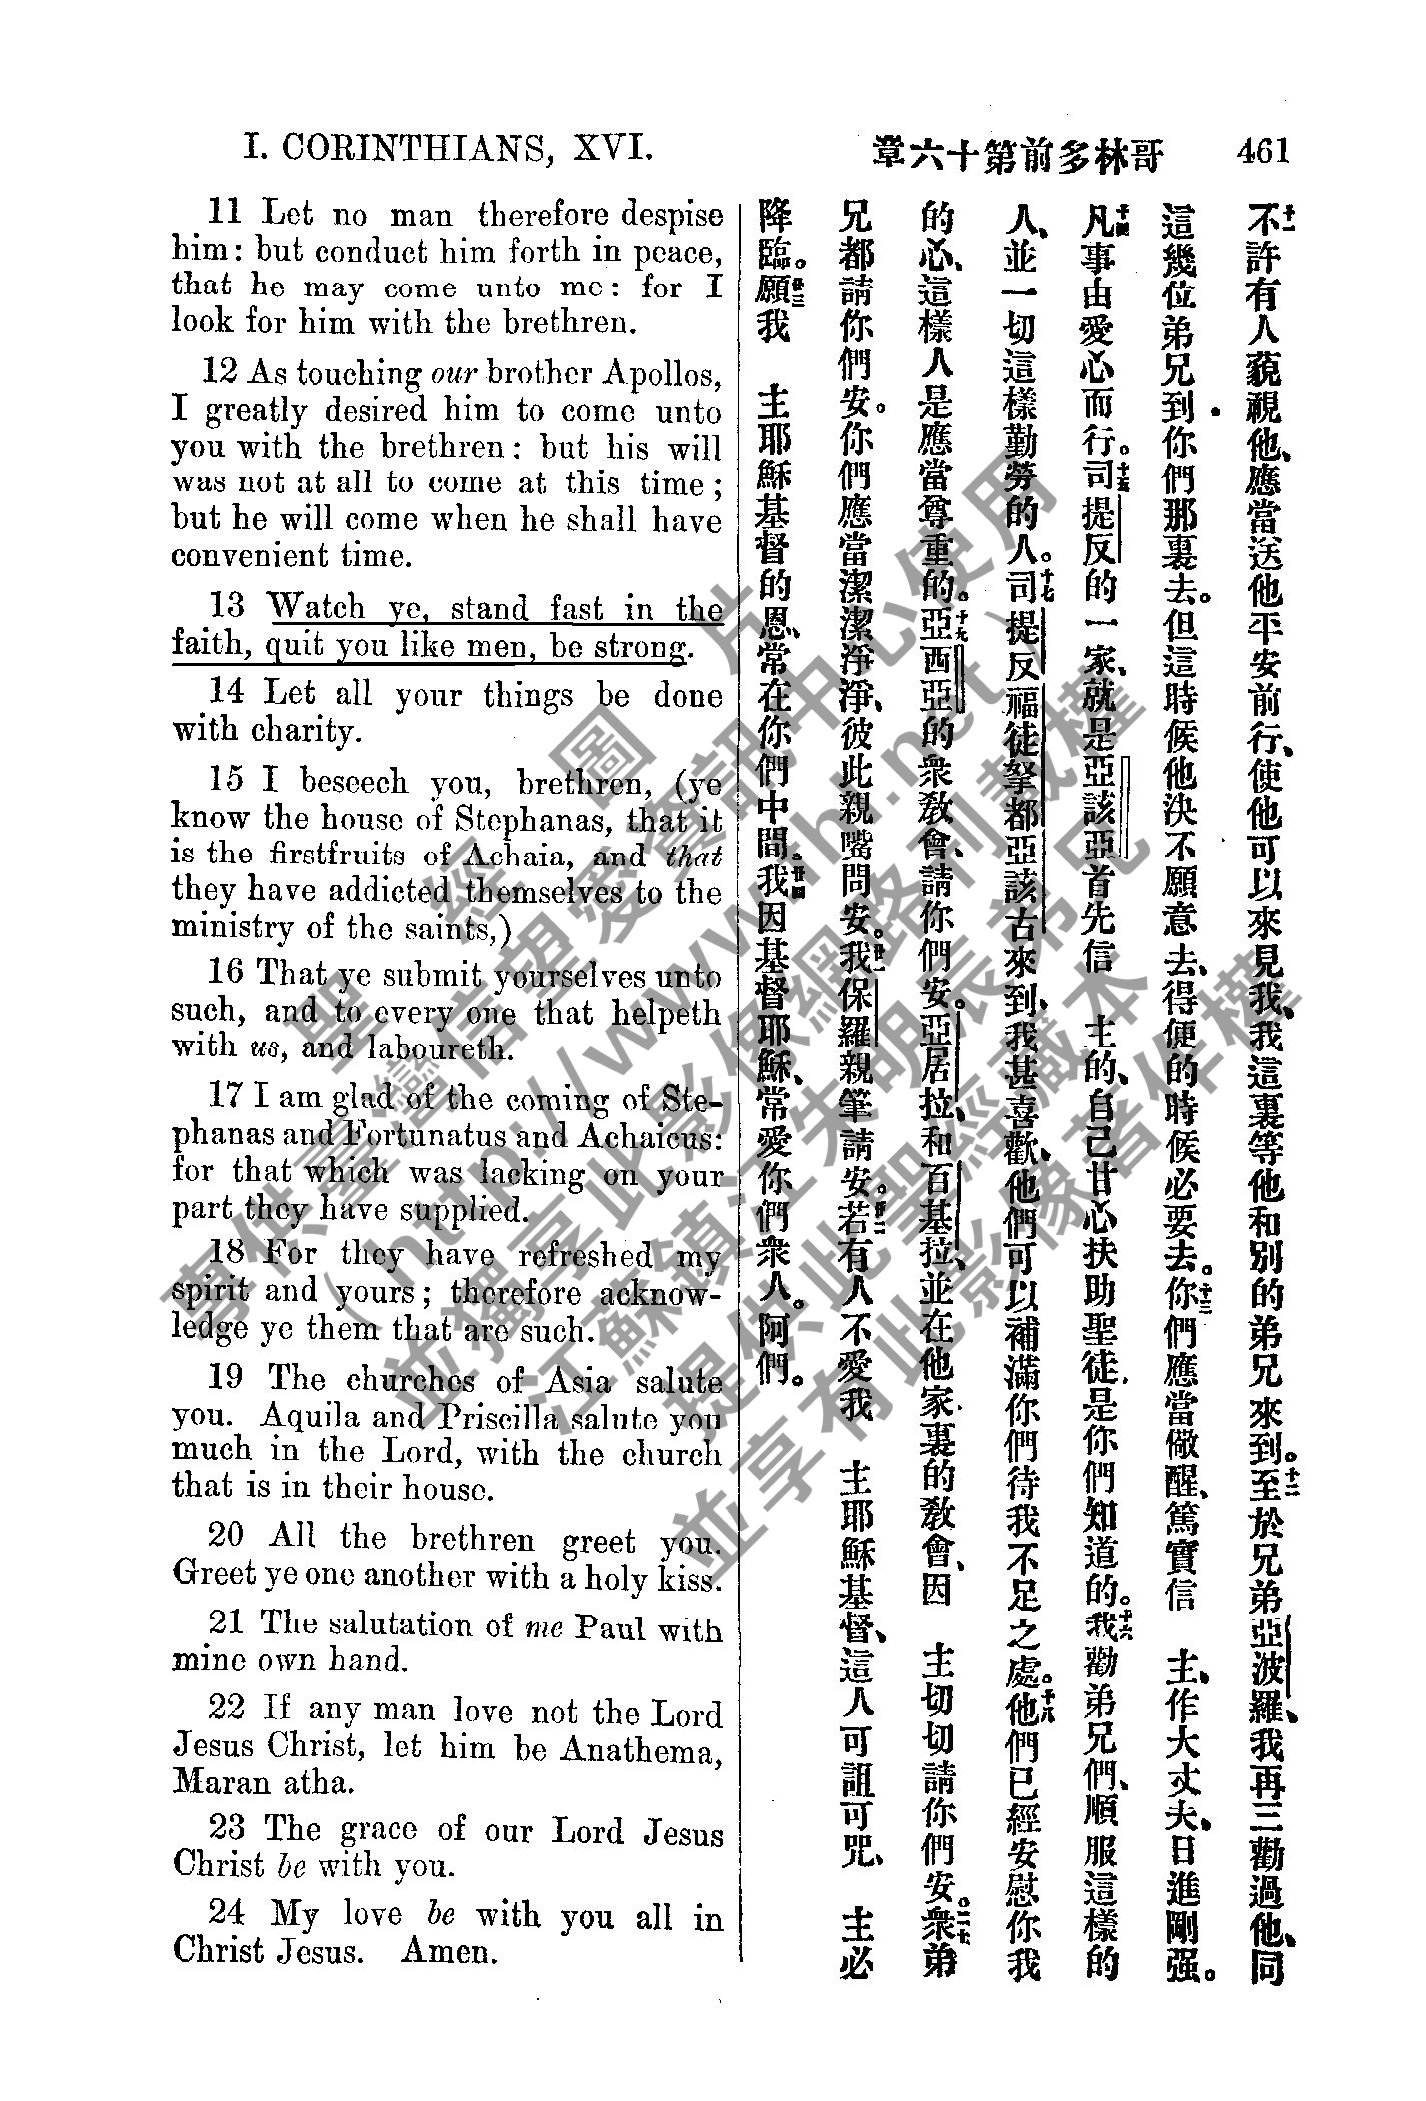 I. CORINTHIANS, XVI.
章六十第前多林哥
461
11 Let no man therefore despise
him: but conduct him forth in peace,
that he may come unto me: for I
look for him with the brethren.
12 As touching our brother Apollos,
I greatly desired him to come unto
you with the brethren: but his will
was not at all to come at this time;
but he will come when he shall have
convenient time.
13 Watch ye, stand fast in the
faith, quit you like men, be strong.
14 Let all your things be done
with charity.
15 I beseech you, brethren, (ye
know the house of Stephanas, that it
is the firstfruits of Achaia, and that
they have addicted themselves to the
ministry of the saints,)
16 That ye submit yourselves unto
such, and to every one that helpeth
with us, and laboureth.
17 I am glad of the coming of Ste-
phanas and Fortunatus and Achaicus:
for that which was lacking on your
part they have supplied.
18 For they have refreshed my
spirit and yours; therefore acknow-
ledge ye them that are such.
19 The churches of Asia salute
you. Aquila and Priscilla salute you
much in the Lord, with the church
that is in their house.
20 All the brethren greet you.
Greet ye one another with a holy kiss.
21 The salutation of me Paul with
mine own hand.
22 If any man love not the Lord
Jesus Christ, let him be Anathema,
Maran atha.
23 The grace of our Lord Jesus
Christ be with you.
24 My love be with you all in
Christ Jesus. Amen.
十一不許有人藐視他、應當送他平安前行、使他可以來見我、我這裏等他和別的弟兄來到。十二至於兄弟亞波羅、我再三勸過他、同
這幾位弟兄到你們那裏去。但這時候他決不願意去、得便的時候必要去。十三你們應當儆醒、篤實信 主、作大丈夫、日進剛强。
十四凡事由愛心而行。十五司提反的一家、就是亞該亞首先信 主的、自己甘心扶助聖徒、是你們知道的。十六我勸弟兄們、順服這樣的
人、並一切這樣勤勞的人。十七司提反福徒拏都亞該古來到、我甚喜歡、他們可以補滿你們待我不足之處。十八他們已經安慰你我
的心、這樣人是應當尊重的。十九亞西亞的衆敎會、請你們安。亞居拉、和百基拉、並在他家裏的敎會、因 主切切請你們安。二十衆弟
兄都請你們安。你們應當潔潔淨淨、彼此親嘴問安。廿一我保羅親筆請安。廿二若有人不愛我 主耶穌基督、這人可詛可咒、 主必
降臨。廿三願我 主耶穌基督的恩、常在你們中間。廿四我因基督耶穌、常愛你們衆人。阿們。
聖經圖片
專供臺灣信望愛資訊中心使用
(http://www.fhl.net)
並獨享此影像網路刊載權
江蘇鎮江朱明辰弟兄
提供此聖經藏本
並享有此影像著作權